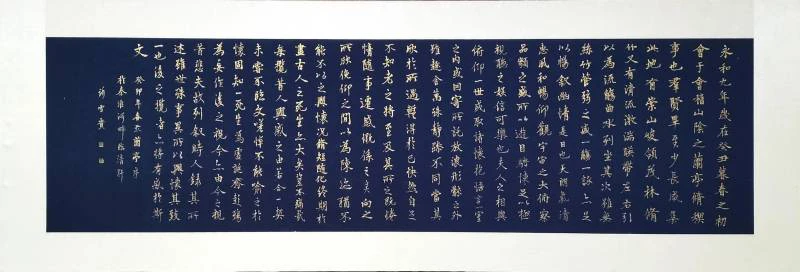 永和九年歲在癸丑暮春之初
會于會稽山陰之蘭亭脩禊
事也羣賢畢至少長咸集
此地有崇山峻領茂林脩
竹又有清流激湍暎帶左右引
以為流觴曲水列坐其次雖無
絲竹管弦之盛一觴一詠亦足
以暢敘幽情是日也天朗氣清
惠風和暢仰觀宇宙之大俯察
品類之盛所以遊目騁懷足以極
視聽之娛信可樂也夫人之相與
俯仰一世或取諸懷抱悟言一室
之內或因寄所託放浪形骸之外
雖趣舍萬殊靜躁不同當其
欣於所遇暫得於己快然自足
不知老之將至及其所之既惓
情隨事遷感慨係之矣向之
所欣俛仰之間以為陳迹猶不
能不以之興懷況脩短隨化終期於
盡古人云死生亦大矣豈不痛哉
每攬昔人興感之由若合一契
未嘗不臨文嗟悼不能喻之於
懷固知一死生為虛誕齊彭殤
為妄作後之視今亦由今之視
昔悲夫故列敘時人錄其所
述雖世殊事異所以興懷其致
一也後之攬者亦將有感於斯
文
癸卯年春蘭亭序
於秦淮河畔臨清軒